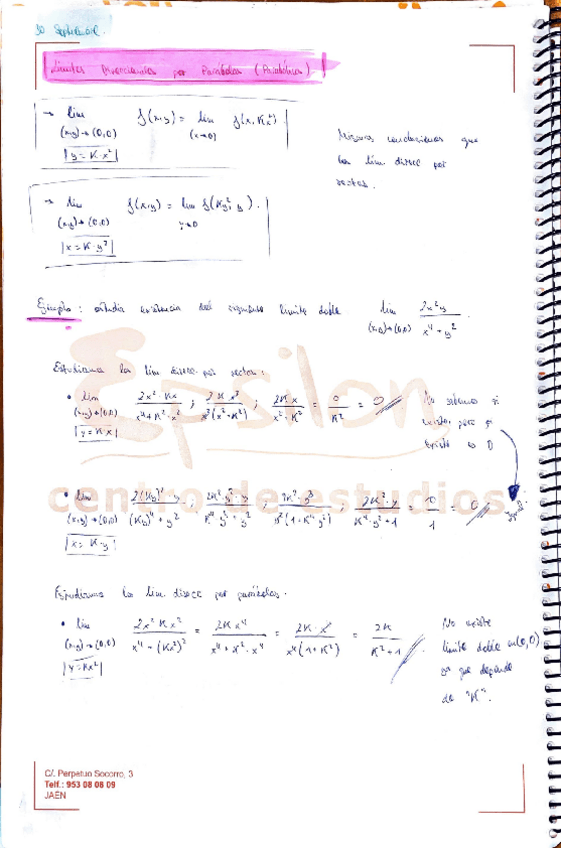 30 Septiembre.
Límites Direccionales por Parábolas (Parabólicos)
→ lim f(x,y) = lim f(x, Kx²)
(x,y)→(0,0) (x→0)
|y = K·x²|
Mismas conclusiones que
los lím direcc por
rectas.
→ lim f(x,y) = lim f(Ky², y).
(x,y)→(0,0) y→0
|x = K·y²|
Ejemplo: estudia existencia del siguiente límite doble lim 2x²y / x⁴ + y²
(x,y)→(0,0)
Estudiamos los lím direcc por rectas:
• lim 2x²·Kx / x⁴+K²·x² ; 2K x³ / x²(x²+K²) ; 2K x / x²+K² = 0 / K² = 0
(x,y)→(0,0)
|y = K·x|
No sabemos si
existe, pero si
existe es 0
• lim 2(Ky)²·y / (Ky)⁴+y² ; 2K²·y²·y / K⁴·y⁴+y² ; 2K²·y³ / y²(1+K⁴y²) ; 2K²·y / K⁴·y²+1 = 0 / 1 = 0
(x,y)→(0,0)
|x = K·y|
Estudiamos los lím. direcc por parábolas.
• lim 2x²·Kx² / x⁴+(Kx²)² = 2K x⁴ / x⁴+K²·x⁴ = 2K·x⁴ / x⁴(1+K²) = 2K / K²+1
(x,y)→(0,0)
|y = Kx²|
No existe
límite doble en (0,0)
ya que depende
de "K".
Epsilon
centro de estudios
C/. Perpetuo Socorro, 3
Telf.: 953 08 08 09
JAÉN